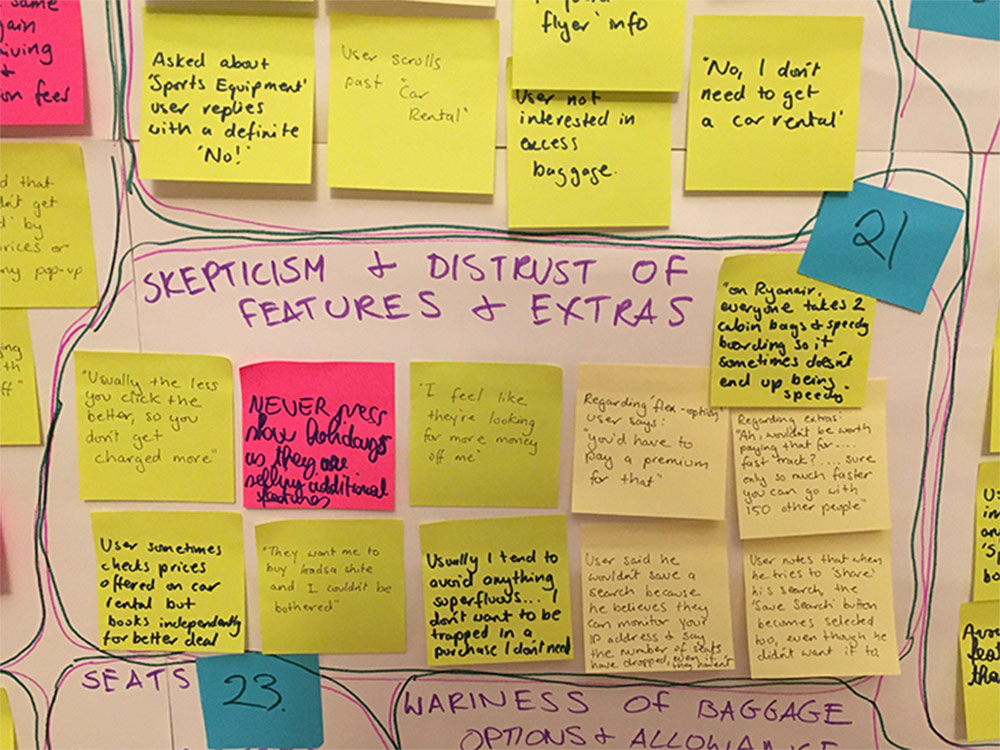 same
gain
iving
+
ion fees
Asked about
'Sports Equipment'
user replies
with a definite
'No!'
User scrolls
past "Car
Rental"
flyer' info
User not
interested in
excess
baggage.
"No, I don't
need to get
a car rental'
d that
n't get
d' by
rices or
ny pop-up
21
SKEPTICISM & DISTRUST OF
FEATURES & EXTRAS
"on Ryanair,
everyone takes 2
cabin bags & speedy
boarding so it
sometimes doesn't
end up being
speedy"
ing
th
ff"
"Usually the less
you click the
better, so you
don't get
charged more"
NEVER press
show holidays
as they are
selling additional
features
"I feel like
they're looking
for more money
off me"
Regarding 'flex-option'
user says:
"you'd have to
pay a premium
for that"
Regarding extras:
"Ah, wouldn't be worth
paying that for....
fast track?.... sure
only so much faster
you can go with
150 other people"
User sometimes
checks prices
offered on car
rental but
books independantly
for better deal
"They want me to
buy loadsa shite
and I couldn't be
bothered"
Usually I tend to
avoid anything
superfluous... I
don't want to be
trapped in a
purchase I don't need
User said he
wouldn't save a
search because
he believes they
can monitor your
IP address & say
the number of seats
have dropped, even if they haven't
User notes that when
he tries to 'share'
his search, the
'Save Search' button
becomes selected
too, even though he
didn't want it to
SEATS
23.
WARINESS OF BAGGAGE
OPTIONS & ALLOWANCE